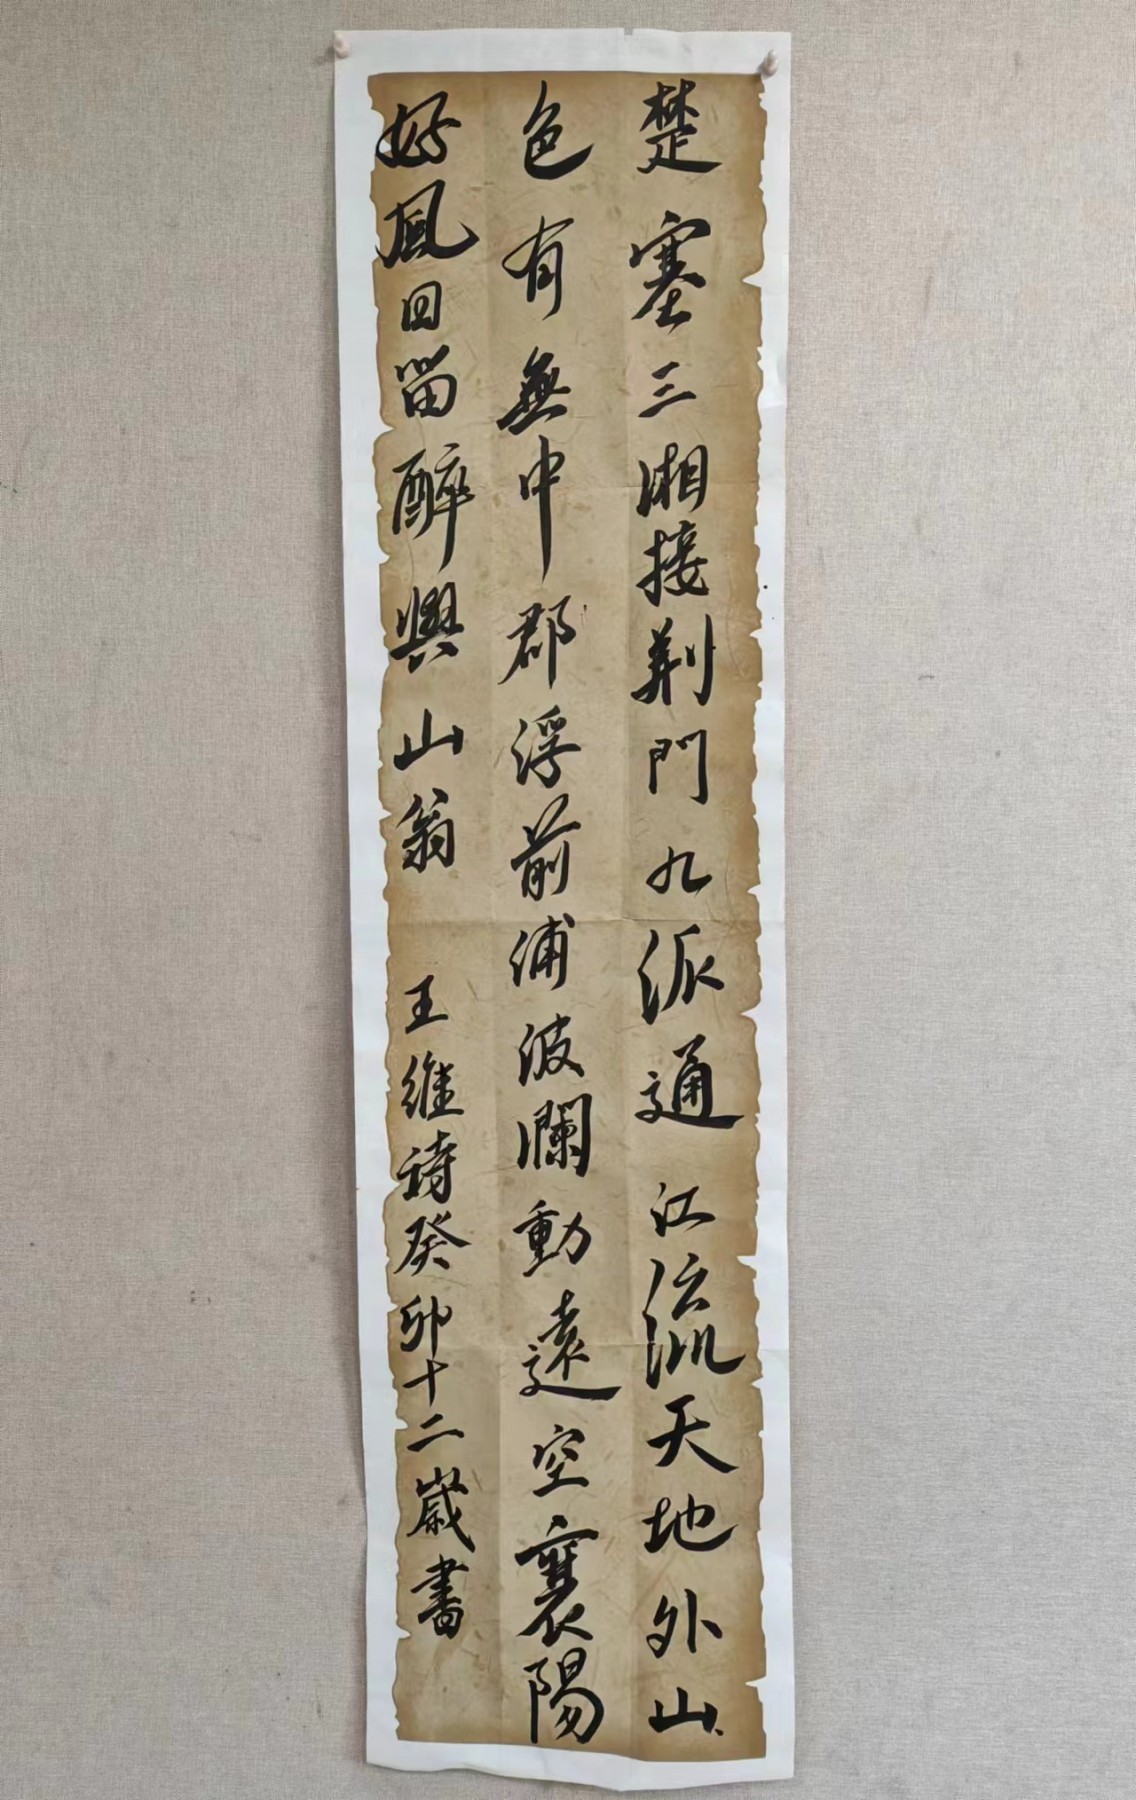 楚塞三湘接荆門九派通江流天地外山
色有無中郡浮前浦波瀾動遠空襄陽
好風回留醉與山翁 王維詩癸卯十二歲書